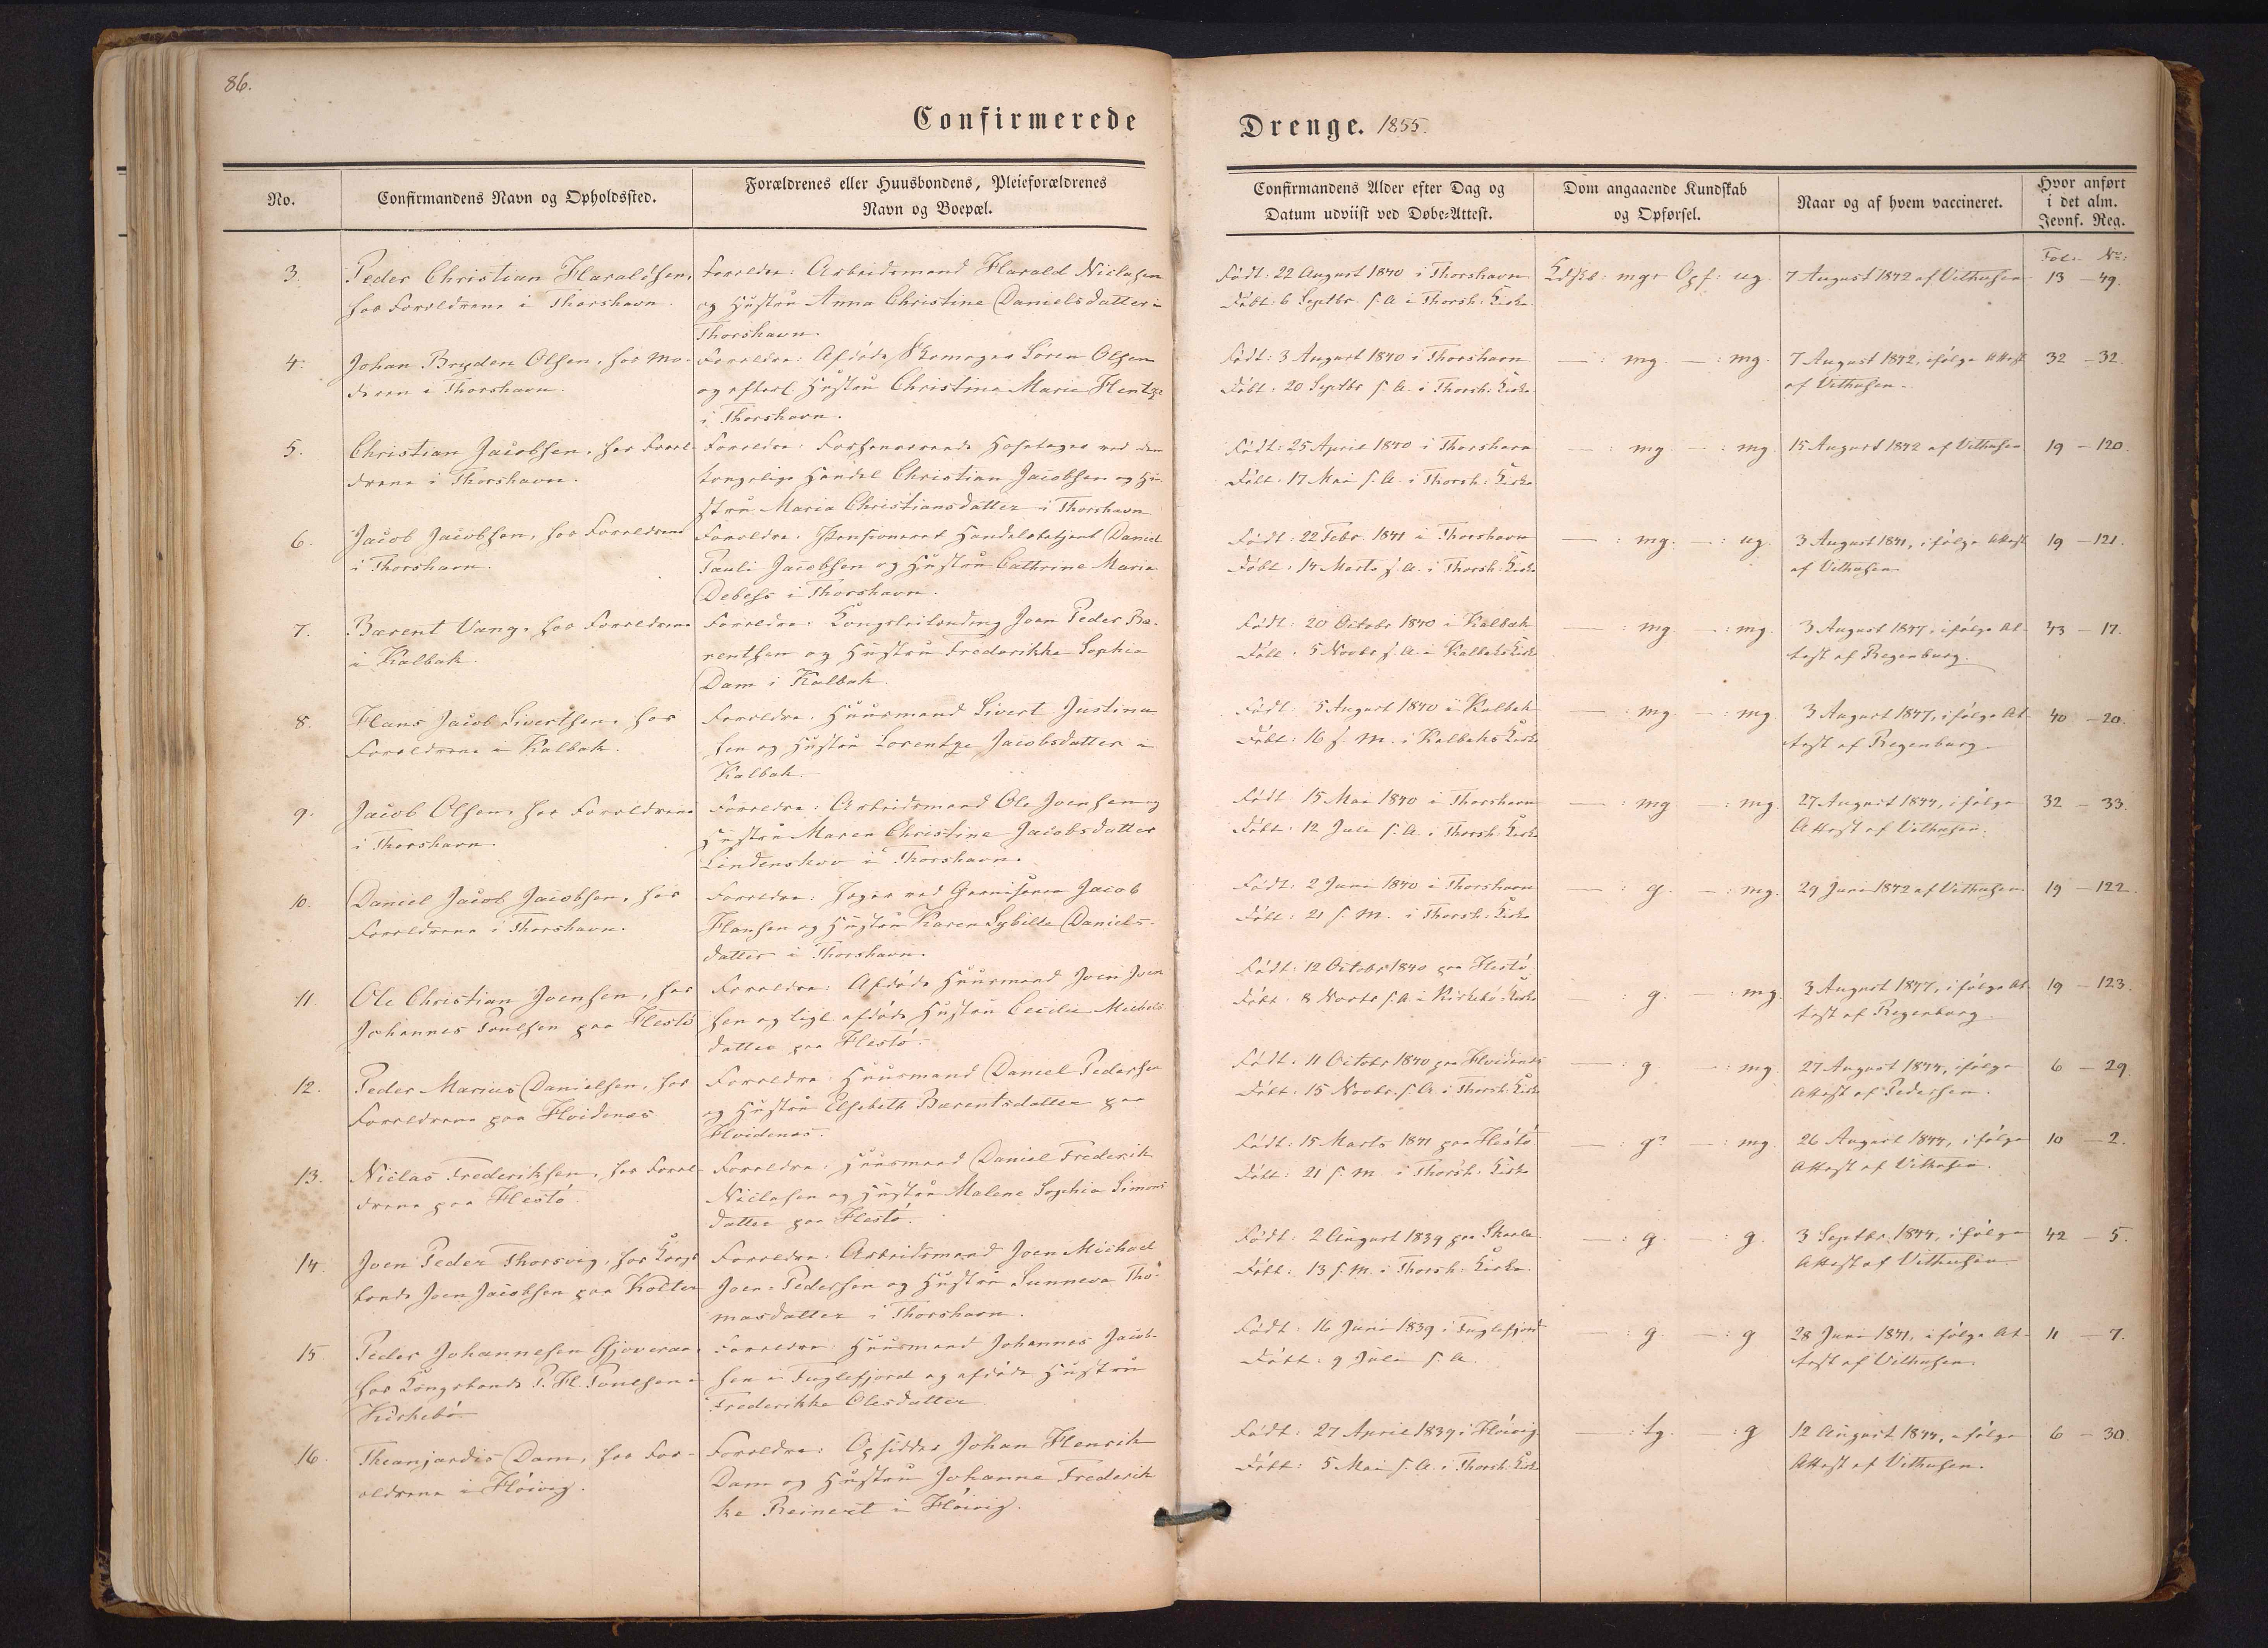 86.
Confirmerede Drenge. 1855.
No.
Confirmandens Navn og Opholdssted.
Forældrenes eller Huusbondens, Pleieforældrenes
Navn og Boepæl.
Confirmandens Alder efter Dag og
Datum udviist ved Døbe-Attest.
Dom angaaende Kundskab
og Opførsel.
Naar og af hvem vaccineret.
Hvor anført
i det alm.
Jevnf. Reg.
Fol. No:
3.
Peder Christian Haraldsen,
hos Forældrene i Thorshavn.
Forældre: Arbeidsmand Harald Niclasen
og Hustru Anna Christine Danielsdatter i
Thorshavn.
Født: 22 August 1840 i Thorshavn
Døbt: 6 Septbr. s. A. i Thorsh. Kirke.
Kdsk: mg+ Opf: ug.
7 August 1842 af Vilhusen
13 – 49.
4.
Johan Bryden Olsen, hos Mo-
deren i Thorshavn.
Forældre: Afdøde Skomager Søren Olsen
og efterl. Hustru Christine Marie Hentze
i Thorshavn.
Født: 3 August 1840 i Thorshavn
Døbt: 20 Septbr s. A. i Thorsh. Kirke
— : mg. — : mg.
7 August 1842, ifølge Attest
af Vilhusen.
32 – 32.
5.
Christian Jacobsen, hos Foræl-
drene i Thorshavn.
Forældre: Forhenværende ved den
kongelige Handel Christian Jacobsen og Hu-
stru Maria Christiansdatter i Thorshavn
Født: 25 April 1840 i Thorshavn
Døbt: 17 Mai s. A. i Thorsh. Kirke
— : mg. — : mg.
15 August 1842 af Vilhusen
19 – 120.
6.
Jacob Jacobsen, hos Forældrene
i Thorshavn.
Forældre: Pensioneret Handelsbetjent Daniel
Pauli Jacobsen og Hustru Cathrine Marie
Debess i Thorshavn.
Født: 22 Febr. 1841 i Thorshavn
Døbt: 14 Marts s. A. i Thorsh. Kirke
— : mg. — : ug.
3 August 1841, ifølge Attest
af Vilhusen
19 – 121.
7.
Barent Vang, hos Forældrene
i Kalbak.
Forældre: Joen Peder Ba-
rentsen og Hustru Frederikke Sophie
Dam i Kalbak.
Født: 20 Octobr 1840 i Kalbak
Døbt: 5 Novbr s. A. i Kalbaks Kirke
— : mg — : mg.
3 August 1847, ifølge At-
test af Regenburg.
43 – 17.
8.
Hans Jacob Sivertsen, hos
Forældrene i Kalbak.
Forældre: Huusmand Sivert Justinu-
sen og Hustru Lorentze Jacobsdatter i
Kalbak.
Født: 5 August 1840 i Kalbak
Døbt: 16 s. M. i Kalbaks Kirke
— : mg — : mg
3 August 1847, ifølge At-
test af Regenburg
40 – 20.
9.
Jacob Olsen, hos Forældrene
i Thorshavn.
Forældre: Arbeidsmand Ole Joensen og
Hustru Maren Christine Jacobsdatter
Lindenskov i Thorshavn.
Født: 15 Mai 1840 i Thorshavn
Døbt: 12 Juli s. A. i Thorsh. Kirke
— : mg — : mg.
27 August 1844, ifølge
Attest af Vilhusen.
32 – 33.
10.
Daniel Jacob Jacobsen, hos
Forældrene i Thorshavn.
Forældre: Jæger ved Garnisonen Jacob
Hansen og Hustru Karen Sybille Daniels-
datter i Thorshavn.
Født: 2 Juni 1840 i Thorshavn
Døbt: 21 s. M. i Thorsh. Kirke
— : g. — : mg.
29 Juni 1842 af Vilhusen
19 – 122.
11.
Ole Christian Joensen, hos
Johannes Poulsen paa Hestø
Forældre: Afdøde Huusmand Joen Joen-
sen og ligl. afdøde Hustru Cecilie Michels-
datter paa Hestø.
Født: 12 Octobr 1840 paa Hestø
Døbt: 8 Novbr s. A. i Kirkebø Kirke
— : g. — : mg.
3 August 1847, ifølge At-
test af Regenburg.
19 – 123.
12.
Peder Marius Danielsen, hos
Forældrene paa Hvidenæs
Forældre: Huusmand Daniel Pedersen
og Hustru Elsebeth Barentsdatter paa
Hvidenæs.
Født: 11 Octobr 1840 paa Hvidenæs
Døbt: 15 Novbr. s. A. i Thorsh. Kirke
— : g — : mg.
27 August 1844, ifølge
Attest af Pedersen.
6 – 29.
13.
Niclas Frederiksen, hos Foræl-
drene paa Hestø
Forældre: Huusmand Daniel Frederik
Niclasen og Hustru Malene Sophie Simons-
datter paa Hestø.
Født: 15 Marts 1841 paa Hestø
Døbt: 21 s. M. i Thorsh. Kirke
— : g? — : mg.
26 August 1844, ifølge
Attest af Vilhusen.
10 – 2.
14.
Joen Peder Thorsvig, hos Kongs-
bonde Joen Jacobsen paa Kolter
Forældre: Arbeidsmand Joen Michael
Joen-Pedersen og Hustru Sunneva Tho-
masdatter i Thorshavn.
Født: 2 August 1839 paa
Døbt: 13 s. M. i Thorsh. Kirke.
— : g. — : g.
3 Septbr. 1844, ifølge
Attest af Vilhusen
42 – 5.
15.
Peder Johannesen Gjoveraa,
hos Kongsbonde P. H. Poulsen i
Kirkebø
Forældre: Huusmand Johannes Jacob-
sen i Fuglefjord og afdøde Hustru
Frederikke Olesdatter
Født: 16 Juni 1839 i Fuglefjord
Døbt: 9 Juli s. A.
— : g. — : g
28 Juni 1841, ifølge At-
test af Vilhusen.
11 – 7.
16.
Theanjardis Dam, hos For-
ældrene i Høivig.
Forældre: Opsidder Johan Henrik
Dam og Hustru Johanne Frederik-
ke Reinert i Høivig.
Født: 27 April 1839 i Høivig
Døbt: 5 Mai s. A. i Thorsh. Kirke
— : tg. — : g
12 August 1844, ifølge
Attest af Vilhusen.
6 – 30.